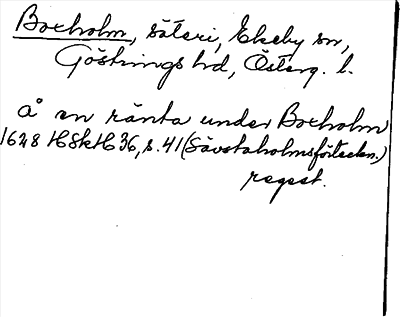 Boxholm, säteri, Ekeby sn,
Göstrings hd, Österg. l.
å en ränta under Boxholm
1628 HSkH 36, s. 41 (Sävstaholmsförteckn.)
regest.